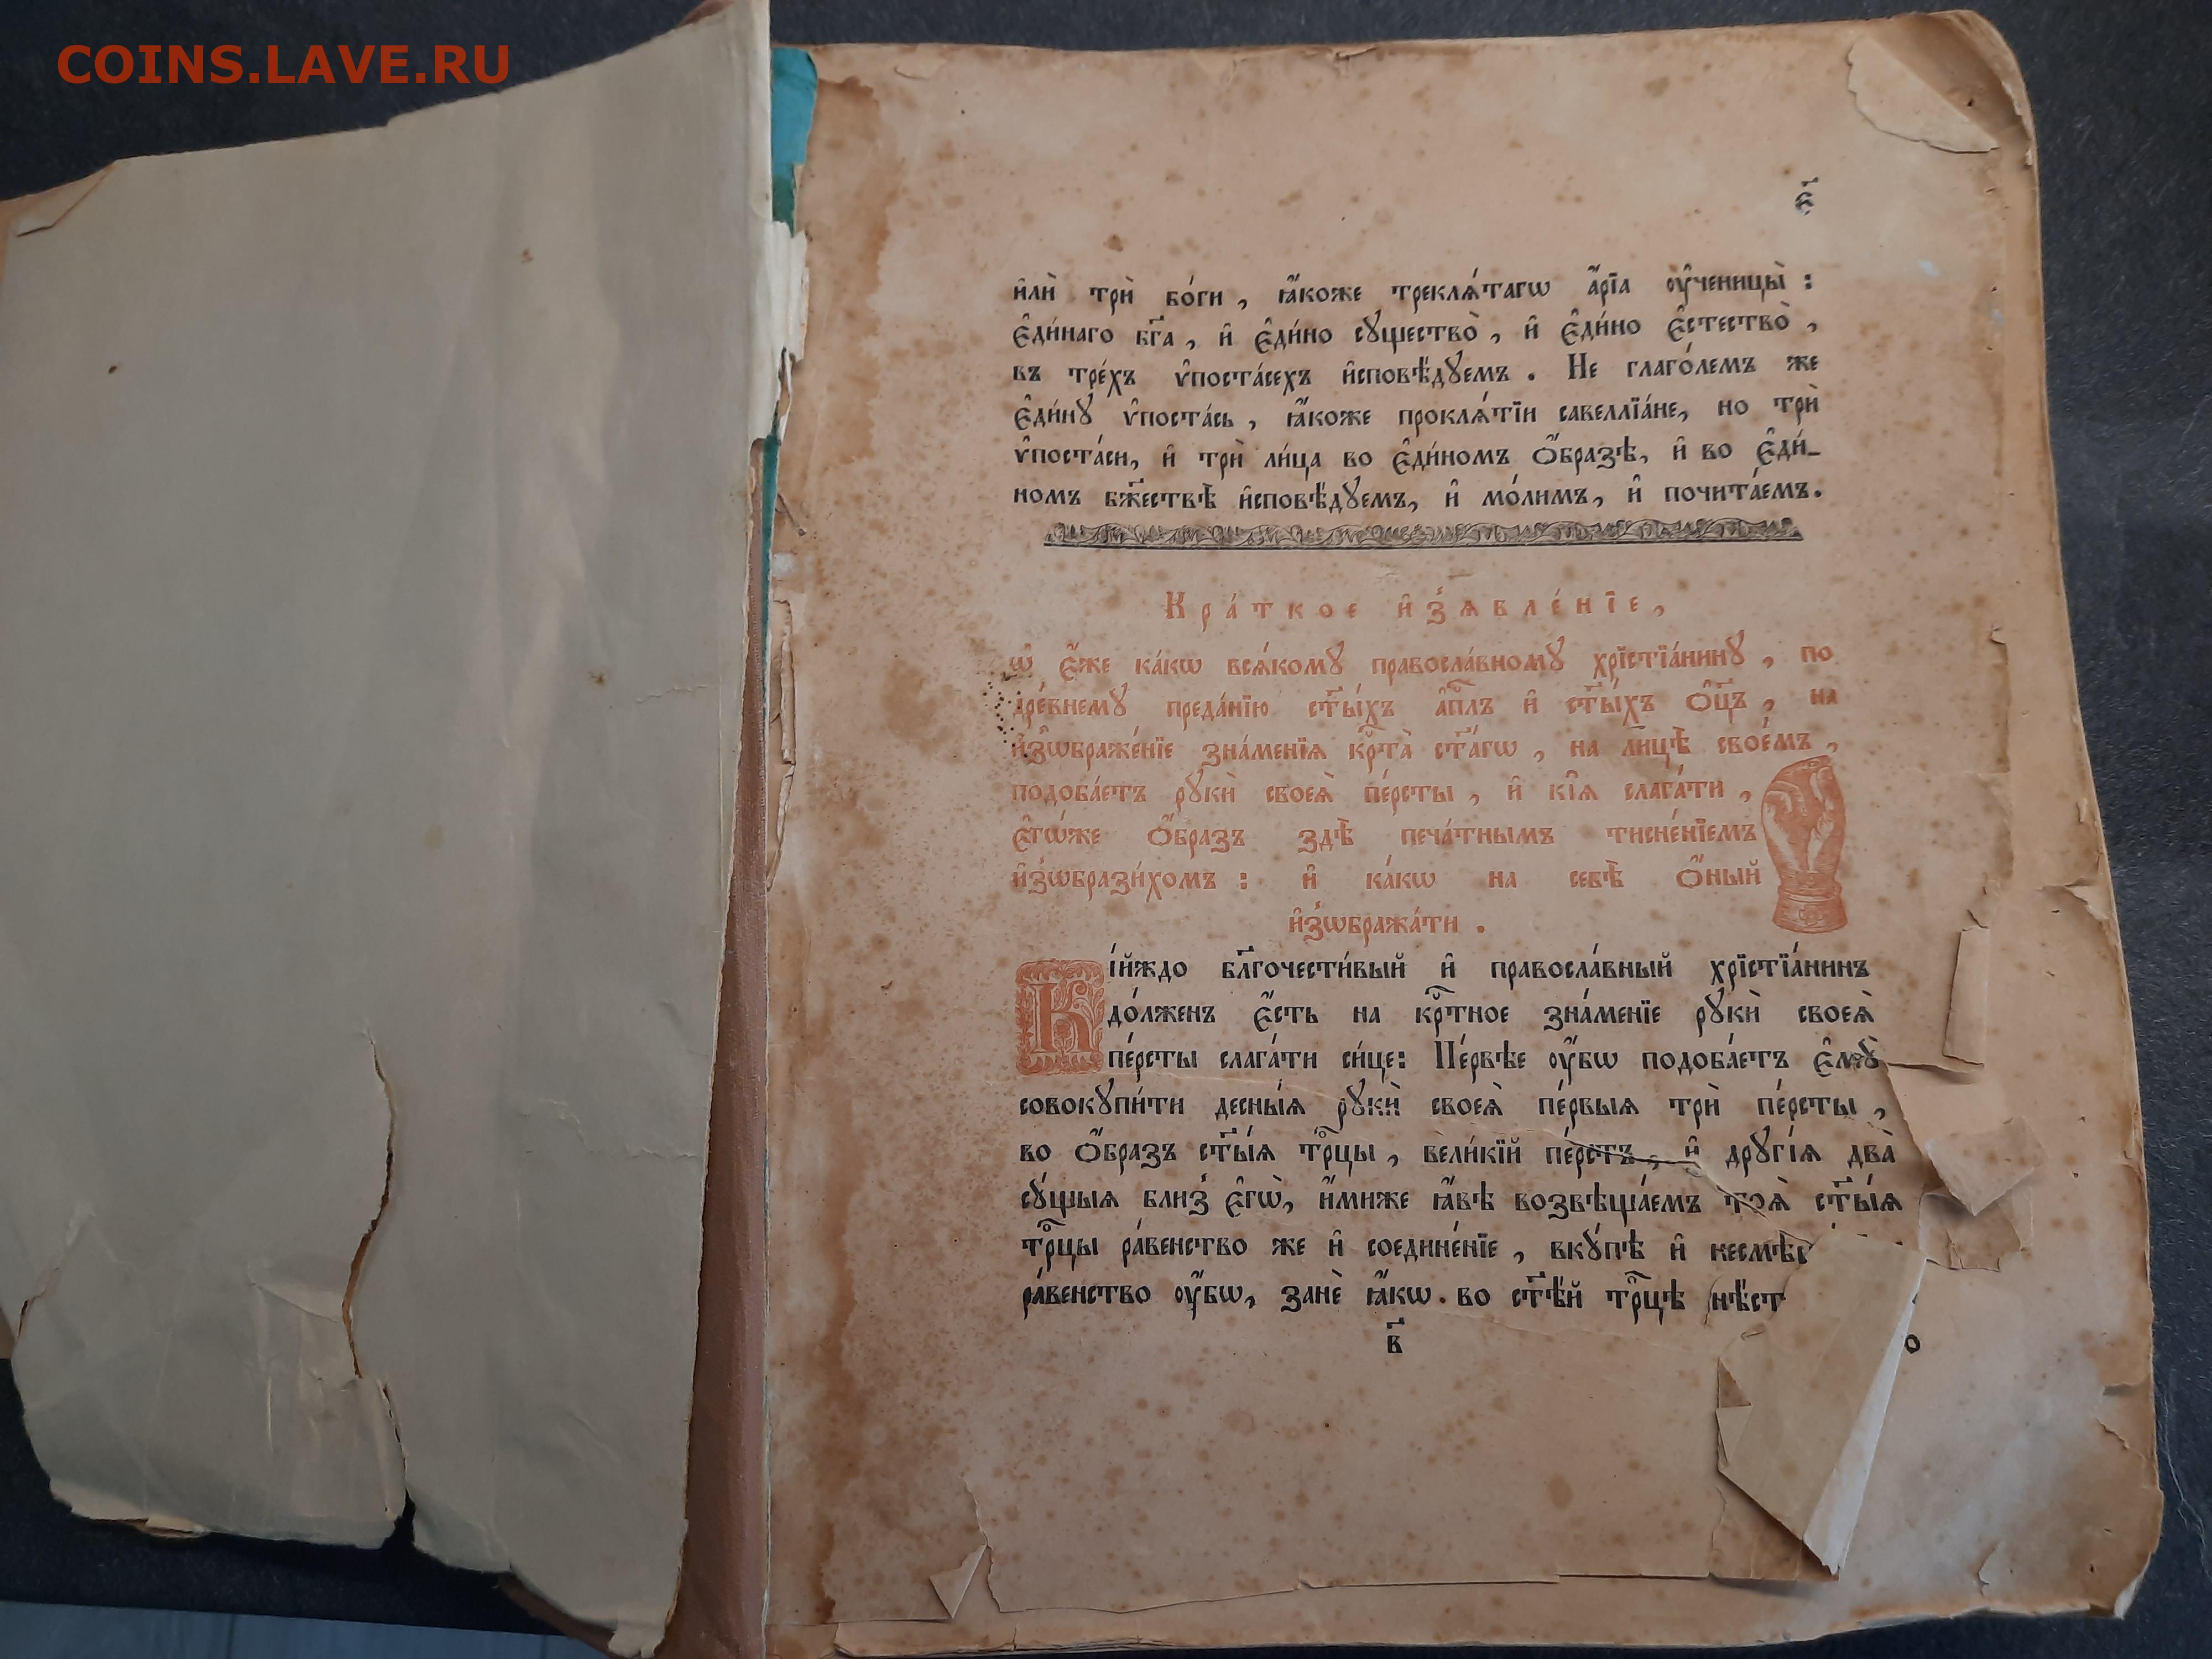 COINS.LAVE.RU
є҃
и҆лѝ трѝ бо́ги , ꙗ҆́коже треклѧ́тагѡ а҆́рїа ᲂу҆ченицы̀ :
є҆ди́наго бг҃а , и҆ є҆ди́но сꙋщество̀ , и҆ є҆ди́но є҆стество̀ ,
въ тре́хъ ѵ҆поста́сехъ и҆сповѣ́дꙋемъ . Не глаго́лемъ же
є҆ди́нꙋ ѵ҆поста́сь , ꙗ҆́коже проклѧ́тїи савеллїа́не, но трѝ
ѵ҆поста́си, и҆ трѝ ли́ца во є҆ди́номъ ѻ҆́бразѣ, и҆ во є҆ди́-
номъ бж҃ествѣ̀ и҆сповѣ́дꙋемъ, и҆ мо́лимъ, и҆ почита́емъ.
Кра́ткое и҆з̾ѧвле́нїе,
ѡ҆ є҆́же ка́кѡ всѧ́комꙋ правосла́вномꙋ хрїстїа́нинꙋ , по
дре́внемꙋ преда́нїю ст҃ы́хъ а҆пⷭ҇лъ и҆ ст҃ы́хъ ѻ҆ц҃ъ , на
и҆з̾ѡбраже́нїе зна́менїѧ крⷭ҇та̀ ст҃а́гѡ , на лицѣ̀ свое́мъ ,
подоба́етъ рꙋкѝ своеѧ̀ пе́рсты , и҆ кі̑ѧ слага́ти ,
є҆гѡ́же ѻ҆́бразъ здѣ̀ печа́тнымъ тисне́нїемъ
и҆з̾ѡбрази́хомъ : и҆ ка́кѡ на себѣ̀ ѻ҆́ный
и҆з̾ѡбража́ти .
Кі́йждо бл҃гочести́вый и҆ правосла́вный хрїстїа́нинъ
до́лженъ є҆́сть на крⷭ҇тное зна́менїе рꙋкѝ своеѧ̀
пе́рсты слага́ти си́це: Пе́рвѣе ᲂу҆́бѡ подоба́етъ є҆мꙋ̀
совокꙋпи́ти десны́ѧ рꙋкѝ своеѧ̀ пе́рвыѧ трѝ пе́рсты ,
во ѻ҆́бразъ ст҃ы́ѧ трⷪ҇цы , вели́кїй пе́рстъ , и҆ дрꙋгі́ѧ два̀
сꙋ́щыѧ близ̾ є҆гѡ̀, и҆́миже ꙗ҆́вѣ возвѣща́емъ тоѧ̀ ст҃ы́ѧ
трⷪ҇цы ра́венство же и҆ соедине́нїе , вкꙋ́пѣ и҆
ра́венство ᲂу҆́бѡ, занѐ ꙗ҆́кѡ . во ст҃ѣ́й трⷪ҇цѣ нѣ́ст
в҃ о